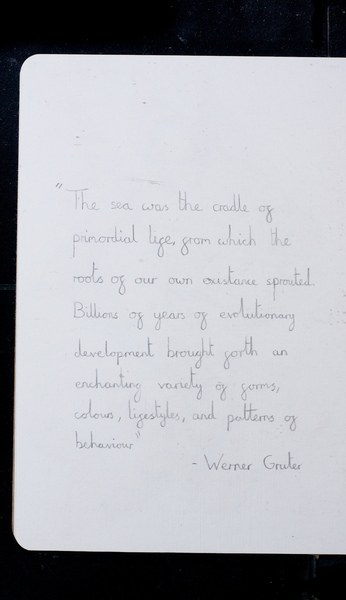 "The sea was the cradle of
primordial life, from which the
roots of our own existance sprouted.
Billions of years of evolutionary
development brought forth an
enchanting variety of forms,
colours, lifestyles, and patterns of
behaviour"
- Werner Gruter